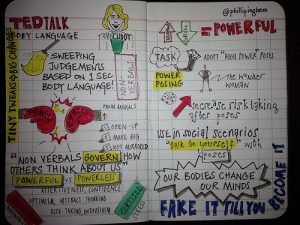 TED TALK
BODY LANGUAGE
CUDDY
TINY TWEAKS → BIG CHANGE
SWEEPING
JUDGEMENTS
BASED ON 1 SEC
BODY LANGUAGE!
NON-VERBALS
OPEN-UP
MAKE BIG
NOT MIRRORED
"NON VERBALS GOVERN HOW
OTHERS THINK ABOUT US
POWERFUL vs POWERLESS
ASSERTIVENESS, CONFIDENCE
OPTIMISM, ABSTRACT THINKING
RISK-TAKING
@philipingham
= POWERFUL
TASK
ADOPT "HIGH POWER" POSES
POWER
POSING
the wonder
woman
increase risk taking
after poses
Use in social scenarios
"talk to yourself" with
poses
OUR BODIES CHANGE
OUR MINDS
FAKE IT TILL YOU
BECOME IT